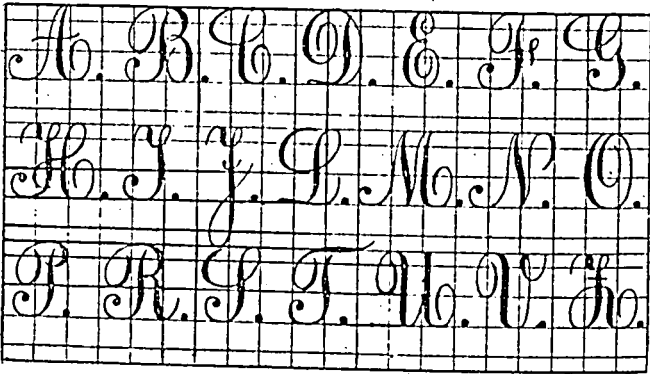 A. B. C. D. E. F. G.
H. I. J. L. M. N. O.
P. R. S. T. U. V.